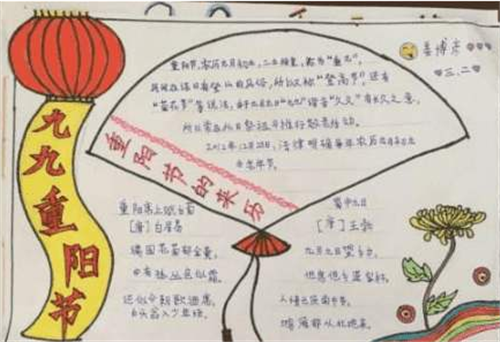 九九重阳节
重阳节的来历
重阳节,农历九月初九,二九相重,称为“重九”,
民间在该日有登高的风俗,所以又称“登高节”,还有
“菊花节”等说法,由于九月初九“九九”谐音“久久”有长久之意,
所以常在此日祭祖与推行敬老活动。
2012年12月28日,法律明确每年农历九月初九
为老年节。
姜博
三.二
重阳席上赋白菊
[唐]白居易
满园花菊郁金黄,
中有孤丛色似霜。
还似今朝歌酒席,
白头翁入少年场。
蜀中九日
[唐]王勃
九月九日望乡台,
他席他乡送客杯。
人情已厌南中苦,
鸿雁那从北地来。